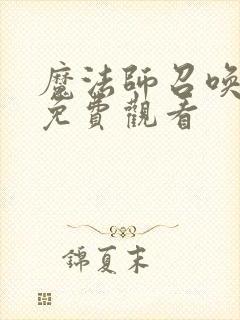 魔法師召喚
免費觀看
錦夏末